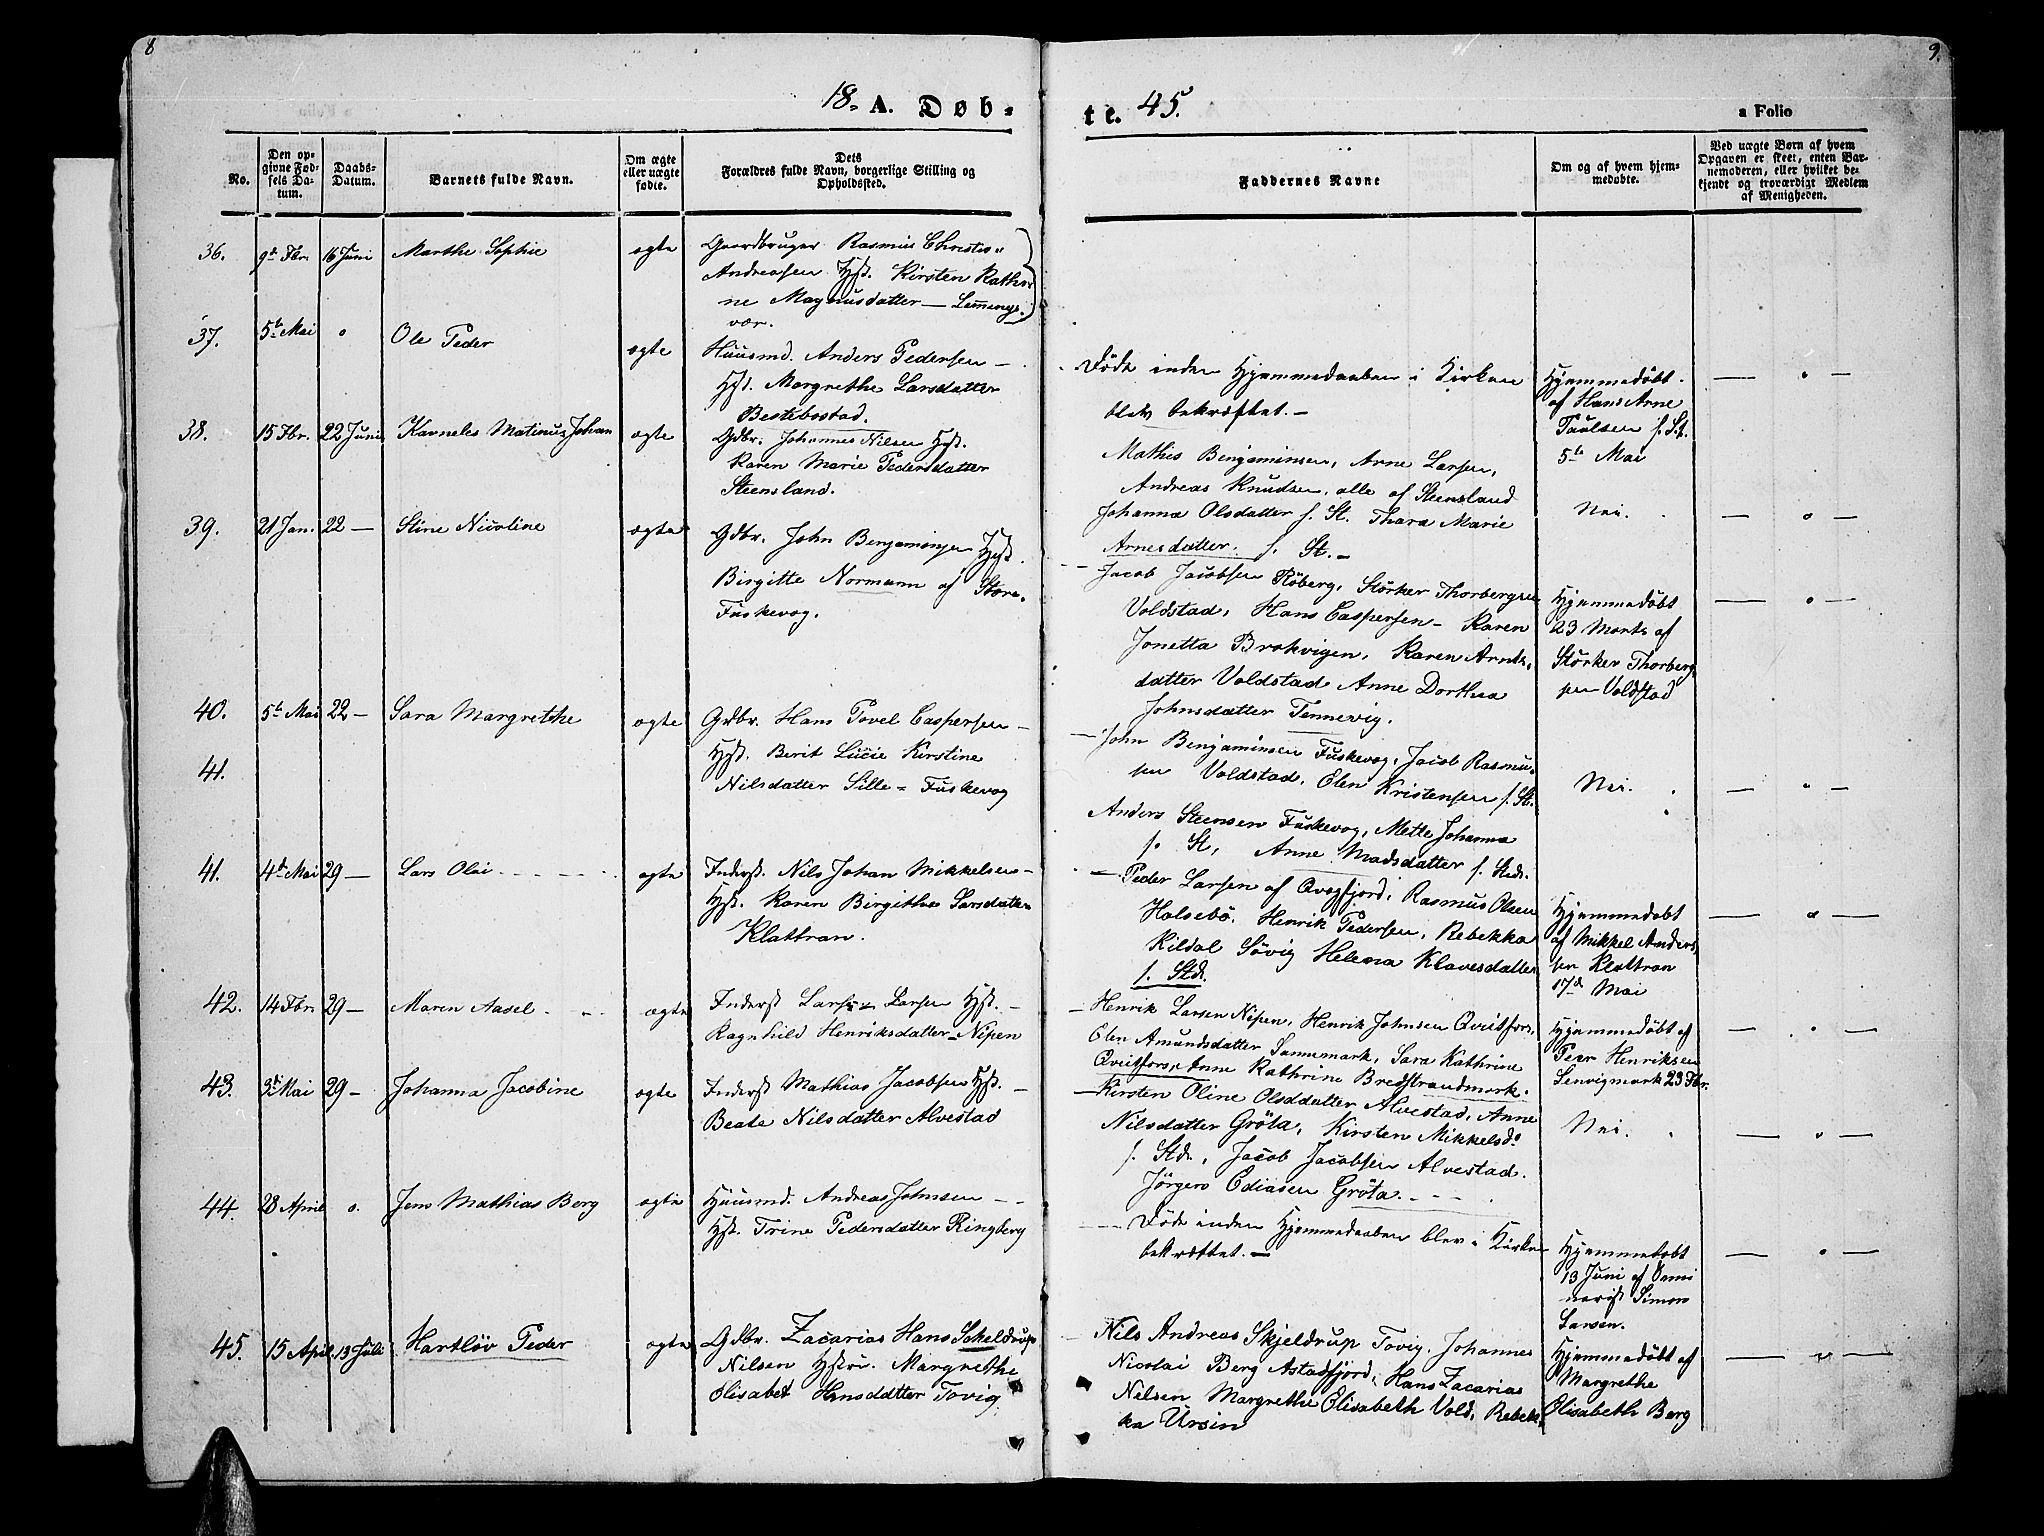 8
18
A. Døb-
No.
Den op-
givne Fød-
sels Da-
tum.
Daabs-
Datum.
Barnets fulde Navn.
Om ægte
eller uægte
fødte.
Dets
Forældres fulde Navn, borgerlige Stilling og
Opholdssted.
36. 9de Fbr. 16 Juni Marthe Sophie ægte Gaardbruger Rasmus Christes
Andreasen Hst. Kirsten Kathri
ne Magnusdatter — Lemmings
vær.
37. 5te Mai o Ole Peder ægte Huusmd. Anders Pedersen —
Hst. Margrethe Larsdatter
Bestebostad.
38. 15 Fbr. 22 Juni Karneles Matinus Johan ægte Gdbr. Johannes Nilsen Hst.
Karen Marie Pedersdatter
Steensland.
39. 21 Jan. 22 — Stine Nicoline ægte Gdbr. John Benjaminsen Hst.
Birgitte Normann af Store-
Fuskevog.
40. 5te Mai 22 — Sara Margrethe ægte Gdbr. Hans Povel Caspersen —
41. Hst. Berit Lucie Kirstine
Nilsdatter Lille = Fuskevog
41. 4de Mai 29 — Lars Olai ægte Inderst. Nils Johan Mikkelsen —
Hst. Karen Birgithe Larsdatter
Klattran.
42. 14 Fbr. 29 — Maren Aasel ægte Inderst Lars Larsen Hst. —
Ragnhild Henriksdatter Nipen
43. 3de Mai 29 — Johanna Jacobine ægte Inderst Mathias Jacobsen Hst. —
Beate Nilsdatter Alvestad
44. 28 April o. Jens Mathias Berg ægte Huusmd. Andreas Johnsen — —
Hst. Trine Pedersdatter Ringberg
45. 15 April. 13 Juli Hartløv Peder ægte Gdbr. Zacarias Hans Scheldrup
Nilsen Hstr. Margrethe
Elisabet Hansdatter Tovig
9.
te. 45.
a Folio
Faddernes Navne
Om og af hvem hjem-
medøbte.
Ved uægte Børn af hvem
Opgaven er skeet, enten Bar-
nemoderen, eller hvilket be-
kjendt og troværdigt Medlem
af Menigheden.
Døde inden Hjemmedaaben i Kirken
blev bekræftet. —
Hjemmedøbt
af Hans Arne
Paulsen f. St.
5te Mai
— o —
Mathis Benjaminsen, Arne Larsen,
Andreas Knudsen, alle af Steensland
Johanna Olsdatter f. St. Thara Marie
Arnesdatter. f. St. —
Nei.
— o —
Jacob Jacobsen Røberg, Størker Thorbergsen
Voldstad, Hans Caspersen — Karen
Jonetta Brokvigen, Karen Arnts-
datter Voldstad Anne Dorthea
Johnsdatter Tennevig.
Hjemmedøbt
23 Marts af
Størker Thorberg
sen Voldstad
— o —
John Benjaminsen Fuskevog, Jacob Rasmu-
sen Voldstad, Elen Kristensen f. St.
Anders Steensen Fuskevog, Mette Johanna
f. St, Anne Madsdatter f. Stds.
Nei.
— o —
Peder Larsen af Qvogfjord, Rasmus Olsen
Halsebø. Henrik Pedersen, Rebekka
Kildal Søvig Helena Klavesdatter
f. Std.
Hjemmedøbt
af Mikkel Anders
sen Klattran
17de Mai
— o —
Henrik Larsen Nipen, Henrik Johnsen Qvitfors,
Elen Amundsdatter Sannemark, Sara Kathrine
Qvitfors, Anne Kathrine Bredstrandmark.
Hjemmedøbt af
Peer Henriksen
Lenvigmark 23 Fbr.
— o —
Kirsten Oline Olsddatter Alvestad, Anne
Nilsdatter Grøta, Kirsten Mikkelsd.
f. Std., Jacob Jacobsen Alvestad.
Jørgen Ediasen Grøta.
Nei.
— o —
Døde inden Hjemmedaaben blev i Kirken
bekræftet. —
Hjemmedøbt
13 Juni af
Simon
Larsen.
— o —
Nils Andreas Skjeldrup Tovig, Johannes
Nicolai Berg Astadfjord, Hans Zacarias
Nilsen Margrethe Elisabeth Vold, Rebek-
ka Ursin
Hjemmedøbt af
Margrethe
Elisabeth Berg
— o —